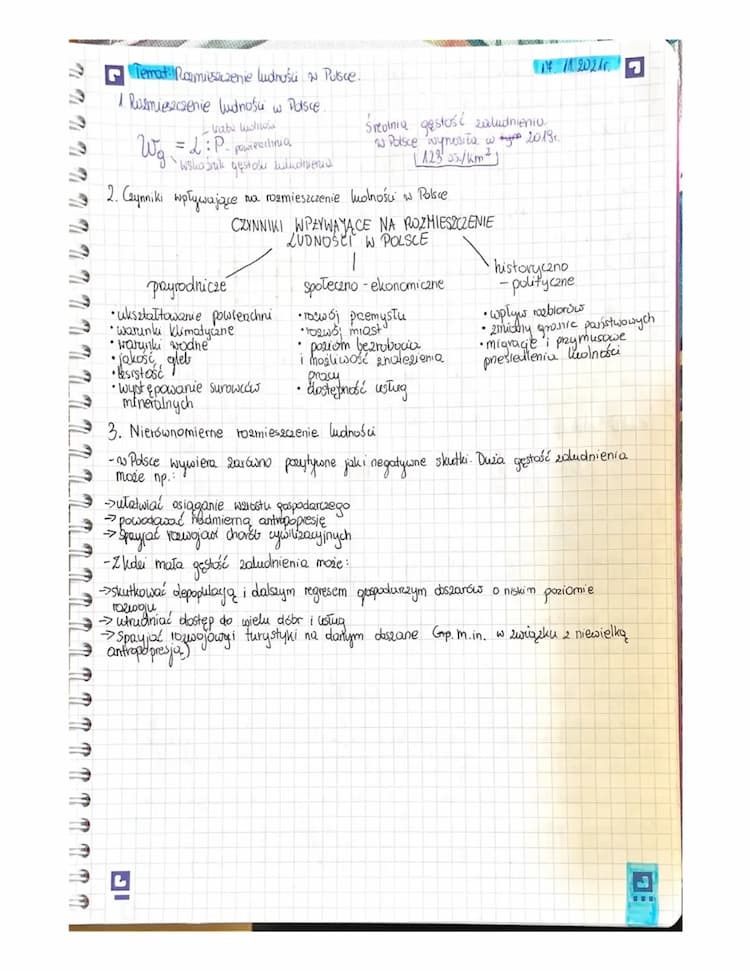 Temat: Rozmieszczenie ludności w Polsce.
17.11.2021r.
1. Rozmieszczenie ludności w Polsce.
liczba ludności
Wg = L : P - powierzchnia
wskaźnik gęstości zaludnienia
Średnia gęstość zaludnienia
w Polsce wynosiła w 2019r.
123 os/km²
2. Czynniki wpływające na rozmieszczenie ludności w Polsce
CZYNNIKI WPŁYWAJĄCE NA ROZMIESZCZENIE
LUDNOŚCI W POLSCE
przyrodnicze
• ukształtowanie powierzchni
• warunki klimatyczne
• warunki wodne
• jakość gleb
• lesistość
• występowanie surowców
mineralnych
społeczno - ekonomiczne
• rozwój przemysłu
• rozwój miast
• poziom bezrobocia
i możliwość znalezienia
pracy
• dostępność usług
historyczno
- polityczne
• wpływ rozbiorów
• zmiany granic państwowych
• migracje i przymusowe
przesiedlenia ludności
3. Nierównomierne rozmieszczenie ludności
- w Polsce wywiera zarówno pozytywne jak i negatywne skutki. Duża gęstość zaludnienia
może np.:
→ ułatwiać osiąganie wzrostu gospodarczego
→ powodować nadmierną antropopresję
→ sprzyjać rozwojowi chorób cywilizacyjnych
- Z kolei mała gęstość zaludnienia może:
→ skutkować depopulacją i dalszym regresem gospodarczym obszarów o niskim poziomie
rozwoju
→ utrudniać dostęp do wielu dóbr i usług
→ Sprzyjać rozwojowi turystyki na danym obszarze (np. m.in. w związku z niewielką
antropopresją)